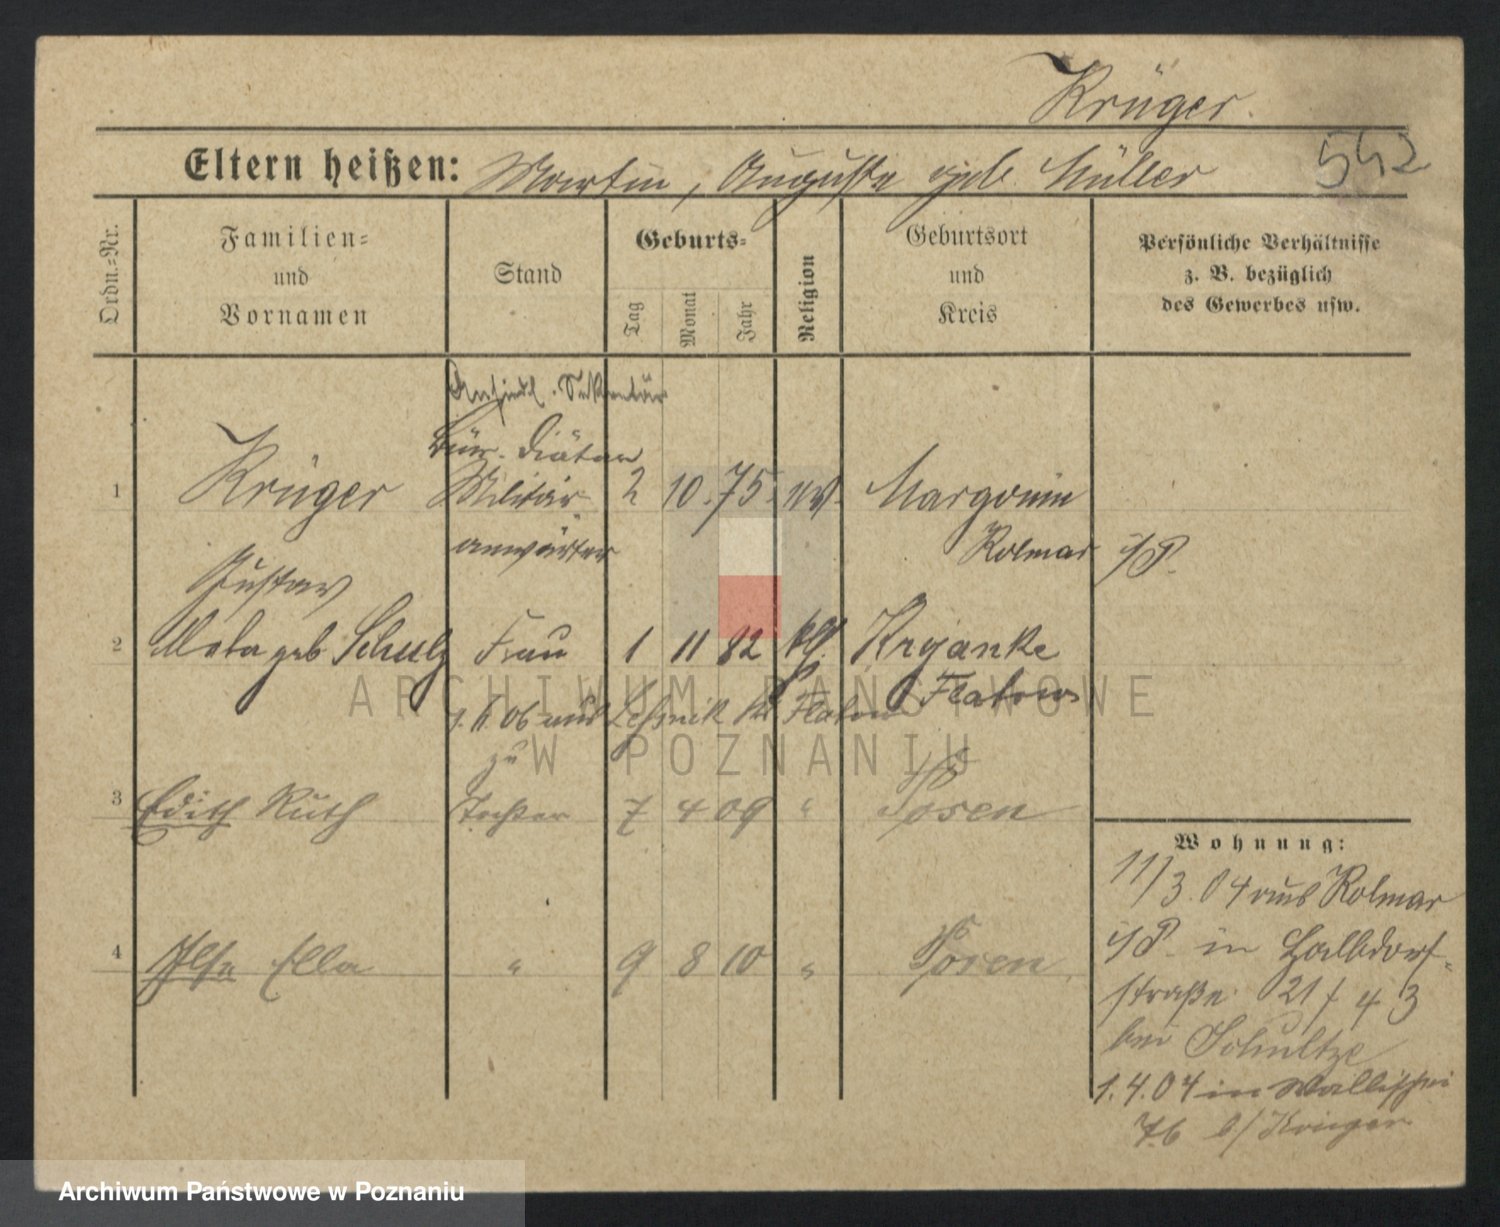 Krüger.
Eltern heißen: Martin, Auguste geb. Müller
542
Ordn.-Nr.
Familien-
und
Vornamen
Stand
Geburts-
Tag
Monat
Jahr
Religion
Geburtsort
und
Kreis
Persönliche Verhältnisse
z. B. bezüglich
des Gewerbes usw.
Sekretär
Bür. Diätar
1 Krüger Militär- 2 10. 75. ev. Margonin
anwärter Kolmar i/P.
Gustav
2 Meta geb Schulz Frau 1 11 82 Krojanke
Flatow
1. 11. 06 aus Kr Flatow
zu
3 Edith Ruth Tochter 7 4 09 " Posen
4 Ilse Ella " 9 8 10 " Posen
Wohnung:
11/3. 04 aus Kolmar
i/P. in Halbdorf-
straße 21 /
bei Schultze
1.4.04 in Wallischei
b/ Krüger
ARCHIWUM PAŃSTWOWE
W POZNANIU
Archiwum Państwowe w Poznaniu